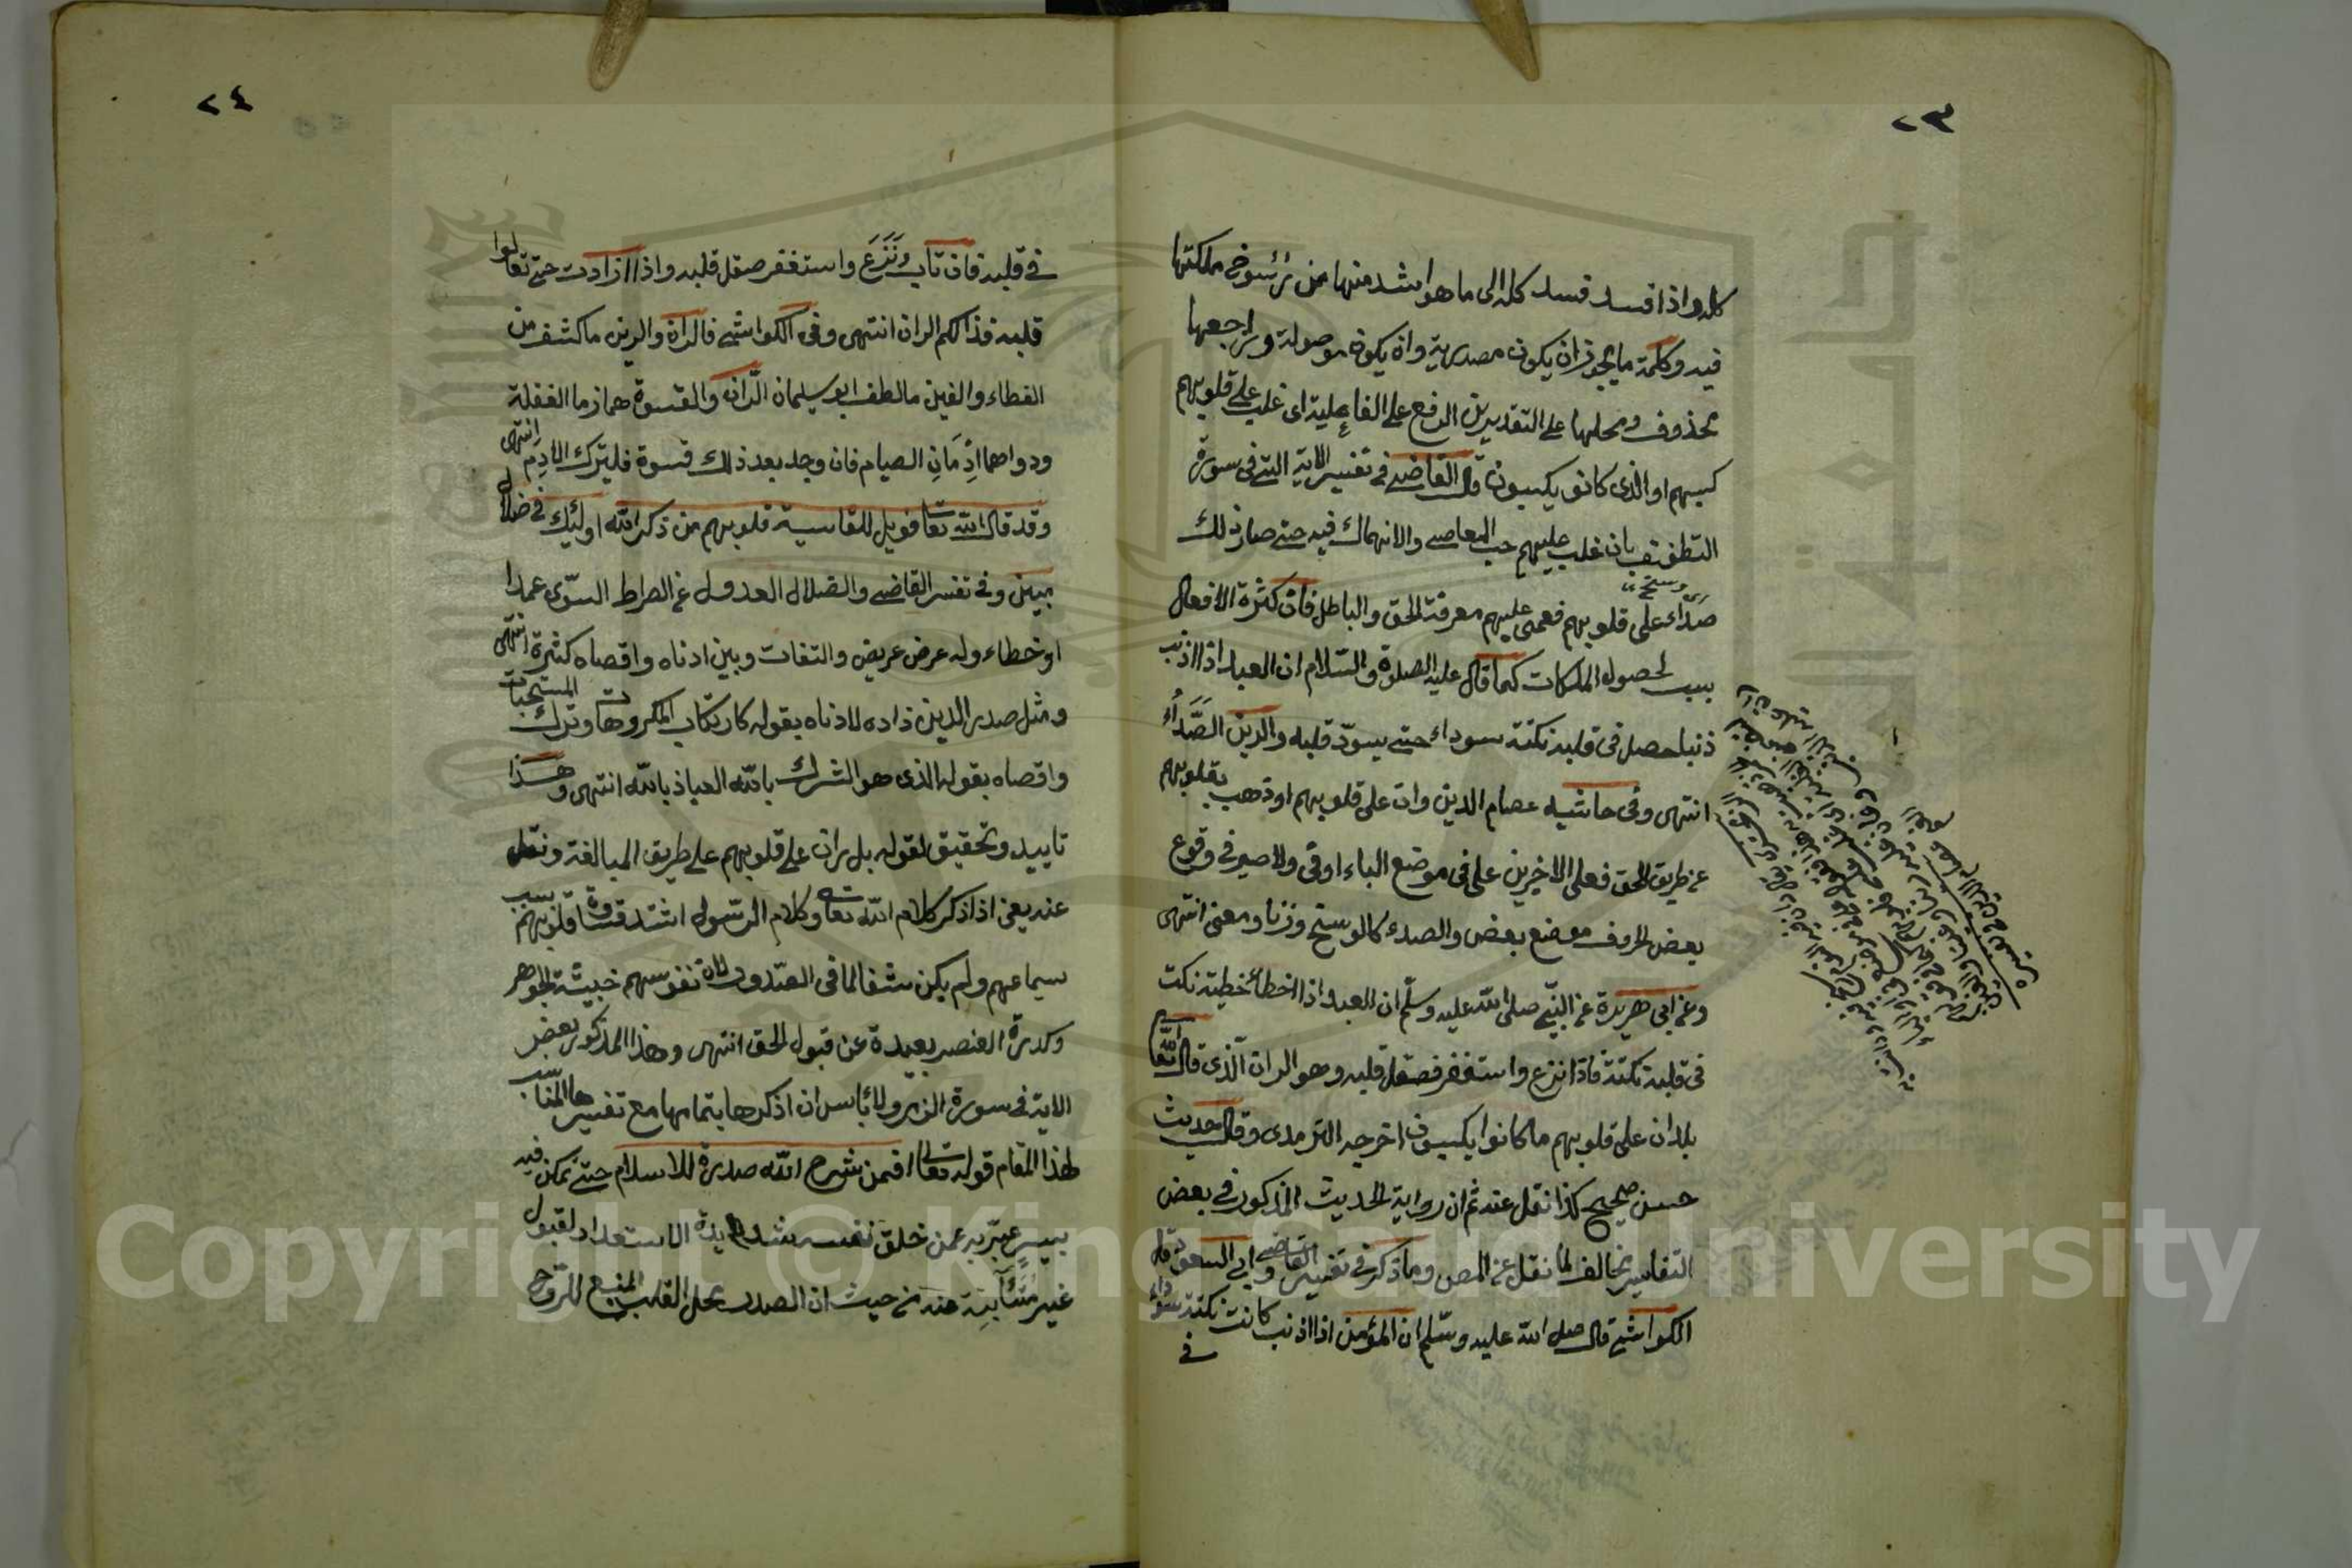 ٢٣
كله واذا فسد فسد كله الى ما هو اشد منها من رسوخ ملكتها
فيه وكلمة ما يجوز ان يكون مصدرية وان يكون موصولة وراجعها
محذوف ومحلها على التقديرين الرفع على الفاعلية اى غلب على قلوبهم
كسبهم او الذى كانو يكسبون قال القاضى فى تفسير الاية التى فى سورة
التطفيف بان غلب عليهم حب المعاصى والانهماك فيه حتى صار ذلك
صداء على قلوبهم فعمى عليهم معرفة الحق والباطل فان كثرة الافعال
سبب لحصول الملكات كما قال عليه الصلوة والسلام ان العبد اذا اذنب
ذنبا حصل فى قلبه نكتة سوداء حتى يسود قلبه والرين الصَّدَاُء
انتهى وفى حاشيه عصام الدين ران على قلوبهم او ذهب بقلوبهم
عن طريق الحق فعلى الاخيرين على فى موضع الباء او فى ولا صير فى وقوع
بعض الحروف موضع بعض والصدء كالوسخ وزنا ومعنى انتهى
وعن ابى هريرة عن النبى صلى الله عليه وسلم ان العبد اذا اخطأ خطيئة نكت
فى قلبه نكتة فاذا نزع واستغفر فصقل قلبه وهو الران الذى قال الله تعا
بل ران على قلوبهم ما كانوا يكسبون اخرجه الترمدى وقال حديث
حسن صحيح كذا نقل عنه ثم ان رواية الحديث المذكور فى بعض
التفاسير يخالف لما نقل عن المص وما ذكر فى تفسير القاضى وابى السعود قال
الكواشى قال صلى الله عليه وسلم ان المؤمن اذا اذنب كانت نكتة سوداء
فى
٢٤
فى قلبه فان تاب وَنَزَعَ واستغفر صقل قلبه واذا ازادت حتى تعلوا
قلبه فذالكم الران انتهى وفى الكواشى فالران والرين ما كشف من
الغطاء والغين ما لطف ابو سليمان الران والقسوة هما زما الغفلة
ودواهما ادمان الصيام فان وجد بعد ذلك قسوة فليترك الادم انتهى
وقد قال الله تعا فويل للقاسية قلوبهم من ذكر الله اولئك فى ضلال
مبين وفى تفسر القاضى والضلال العدول عن الصراط السوى عمدا
او خطاء وله عرض عريض والتفات وبين ادناه واقصاه كثيرة انتهى
ومثل صدر الدين زاده لادناه بقوله كارتكاب المكروهات وترك المستحبات
واقصاه بقوله الذى هو الشرك بالله العياذ بالله انتهى وهذا
تاييد وتحقيق لقوله بل ران على قلوبهم على طريق المبالغة ونقل
عنه يعنى اذا ذكر كلام الله تعا وكلام الرسول اشتد قساوة قلوبهم بسبب
سماعهم ولم يكن شفا لما فى الصدور لان نفوسهم خبيثة الجوهر
وكدرة العنصر بعيدة عن قبول الحق انتهى وهذا المذكور بعض
الاية فى سورة الزمر ولا بأس ان اذكرها بتمامها مع تفسيرها المناسب
لهذا المقام قوله تعالى افمن شرح الله صدره للاسلام حتى تمكن فيه
بيسر عبّر به عمن خلق نفسه شديدة الاستعداد لقبول
غير مُتَأَبِّيَة عنه من حيث ان الصدر محل القلب المنبع للروح